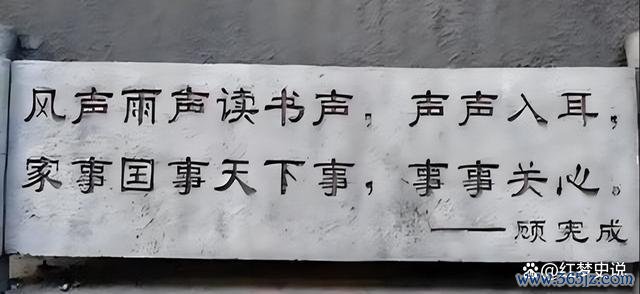 风声雨声读书声，声声入耳，
家事国事天下事，事事关心。
——顾宪成
红梦史说
www.365jz.com